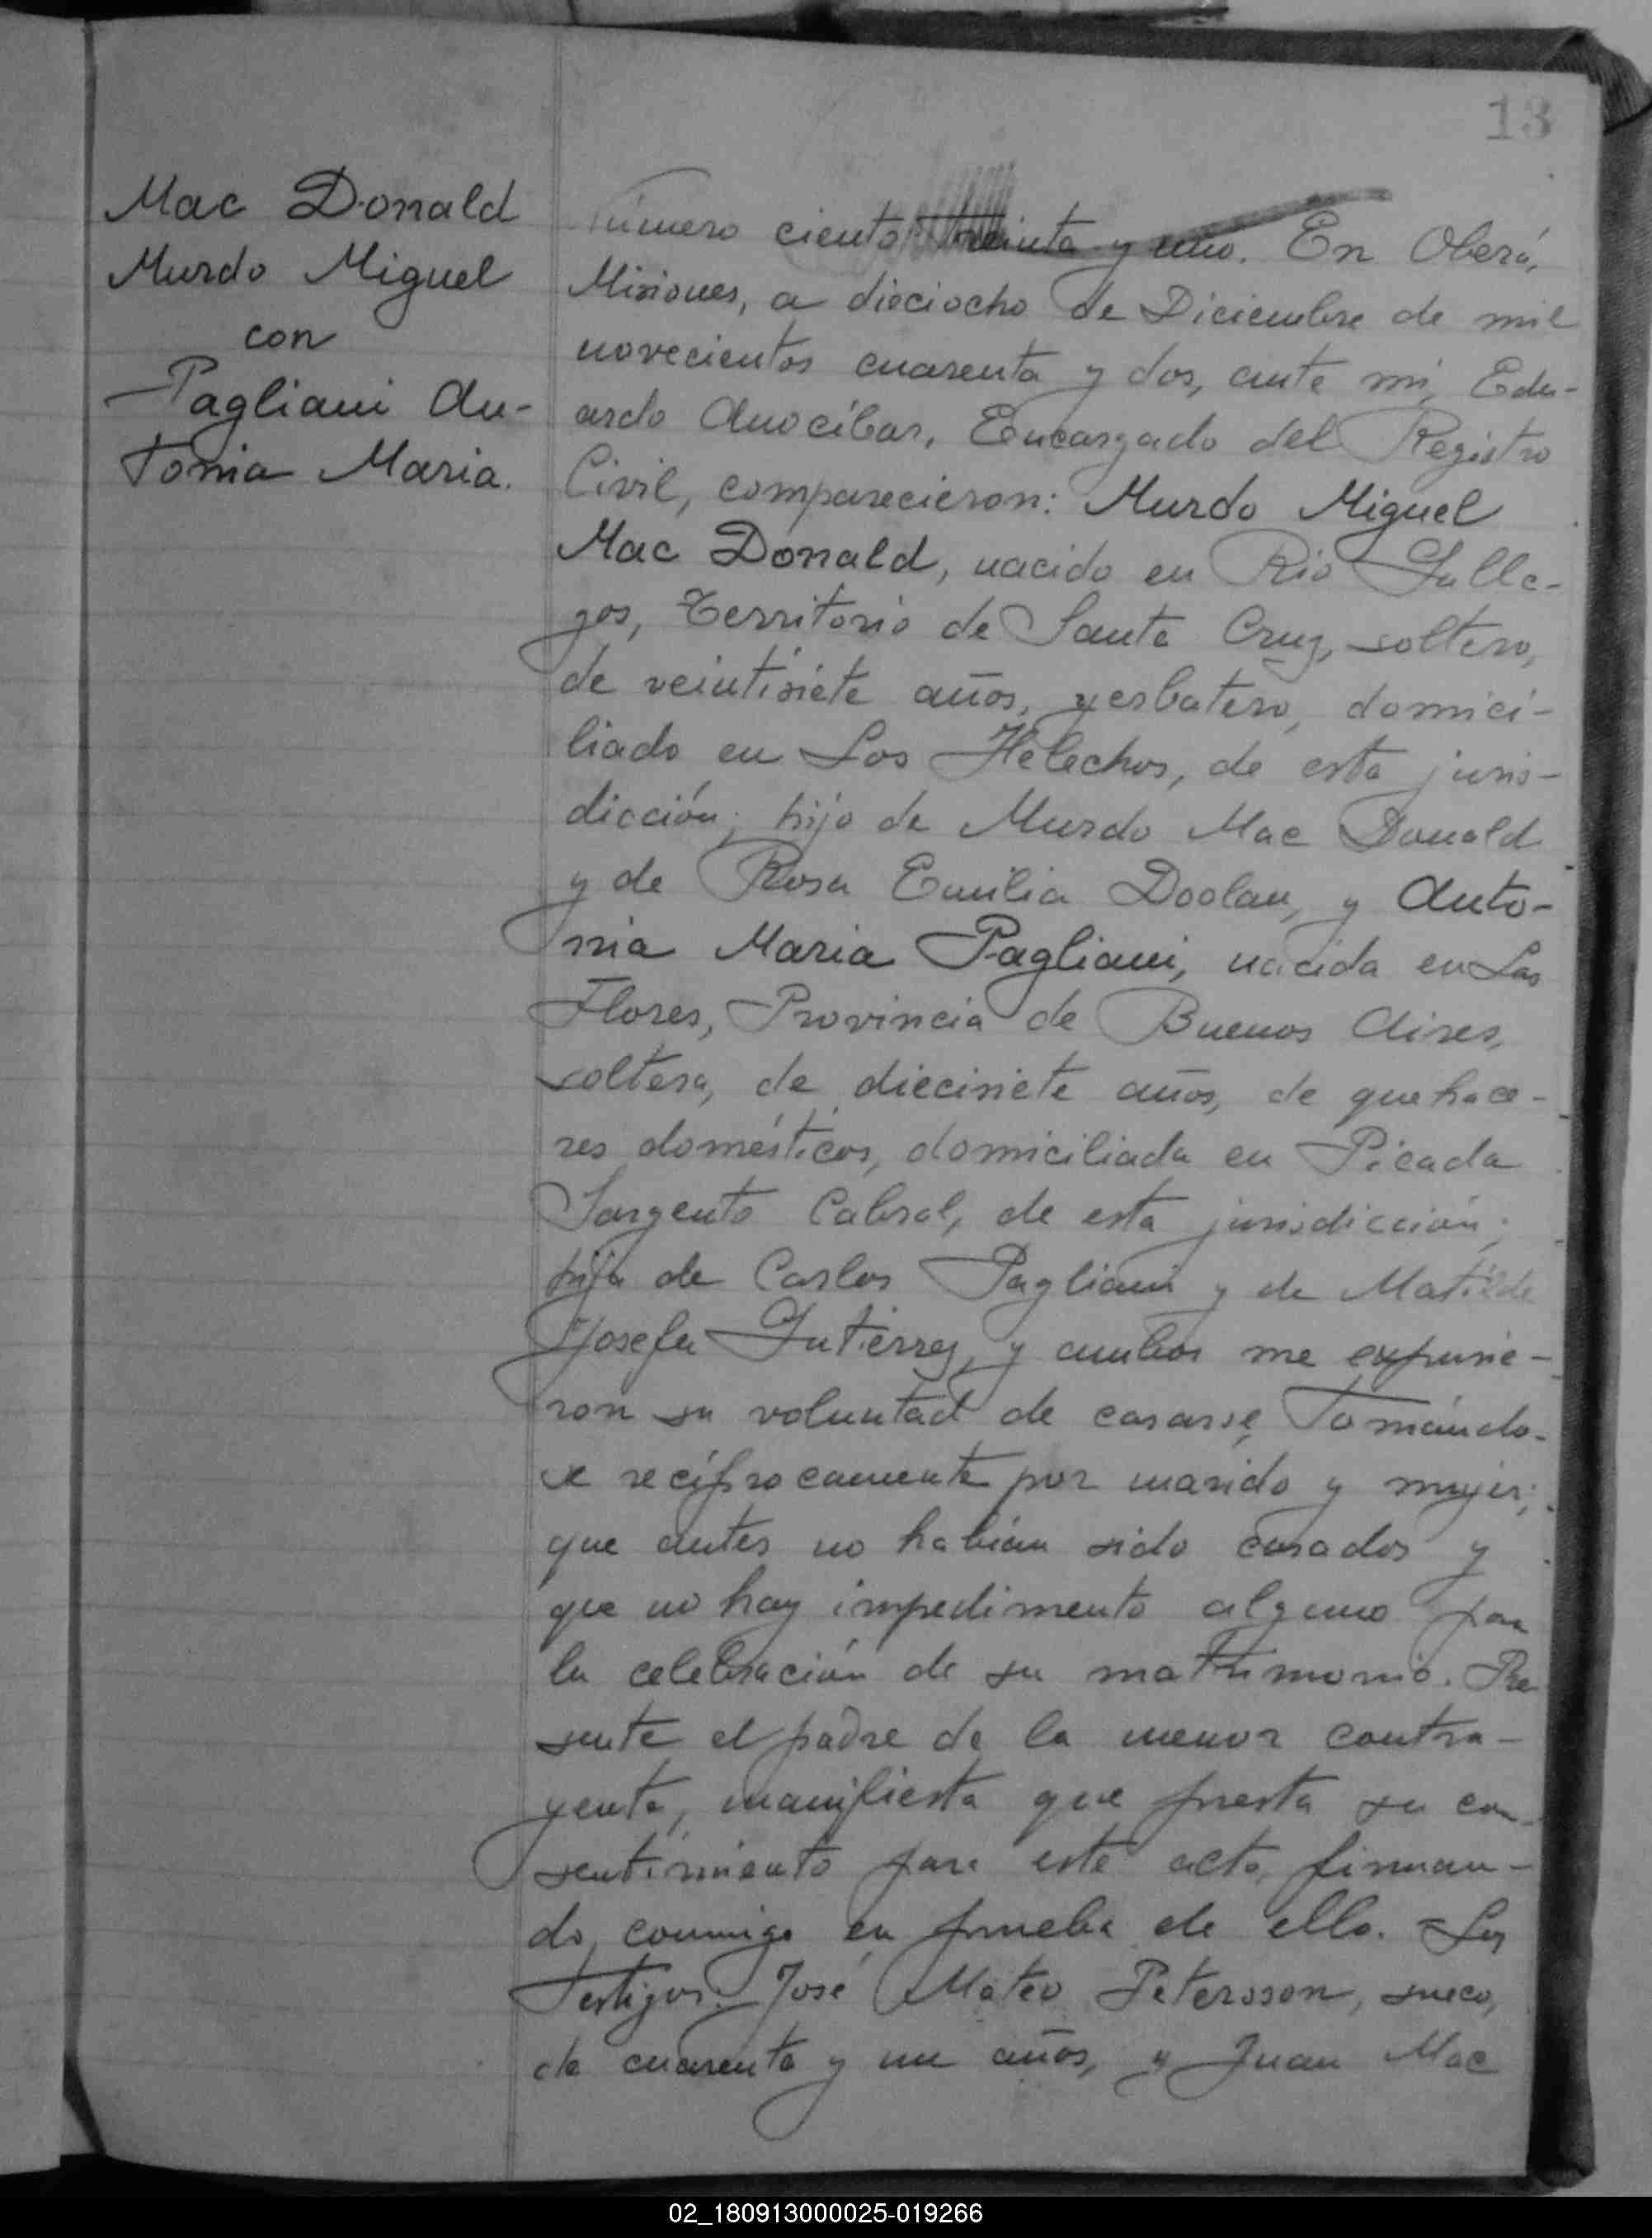 13
Mac Donald
Murdo Miguel
con
Pagliani An-
tonia Maria.
Número ciento treinta y uno. En Oberá,
Misiones, a dieciocho de Diciembre de mil
novecientos cuarenta y dos, ante mí, Edu-
ardo Anocíbar, Encargado del Registro
Civil, comparecieron: Murdo Miguel
Mac Donald, nacido en Río Galle-
gos, Territorio de Santa Cruz, soltero,
de veintisiete años, yerbatero, domici-
liado en Los Helechos, de esta juris-
dicción; hijo de Murdo Mac Donald
y de Rosa Emilia Doolan, y Anto-
nia Maria Pagliani, nacida en Las
Flores, Provincia de Buenos Aires,
soltera, de diecisiete años, de quehace-
res domésticos, domiciliada en Picada
Sargento Cabral, de esta jurisdicción;
hija de Carlos Pagliani y de Matilde
Josefa Gutiérrez, y ambos me expusie-
ron su voluntad de casarse, tomándo-
se recíprocamente por marido y mujer;
que antes no habían sido casados y
que no hay impedimento alguno para
la celebración de su matrimonio. Pre
sente el padre de la menor contra-
yente, manifiesta que presta su con-
sentimiento para este acto, firman-
do conmigo en prueba de ello. Los
Testigos: José Mateo Petersson, sueco,
de cuarenta y un años, y Juan Mac
02_180913000025-019266